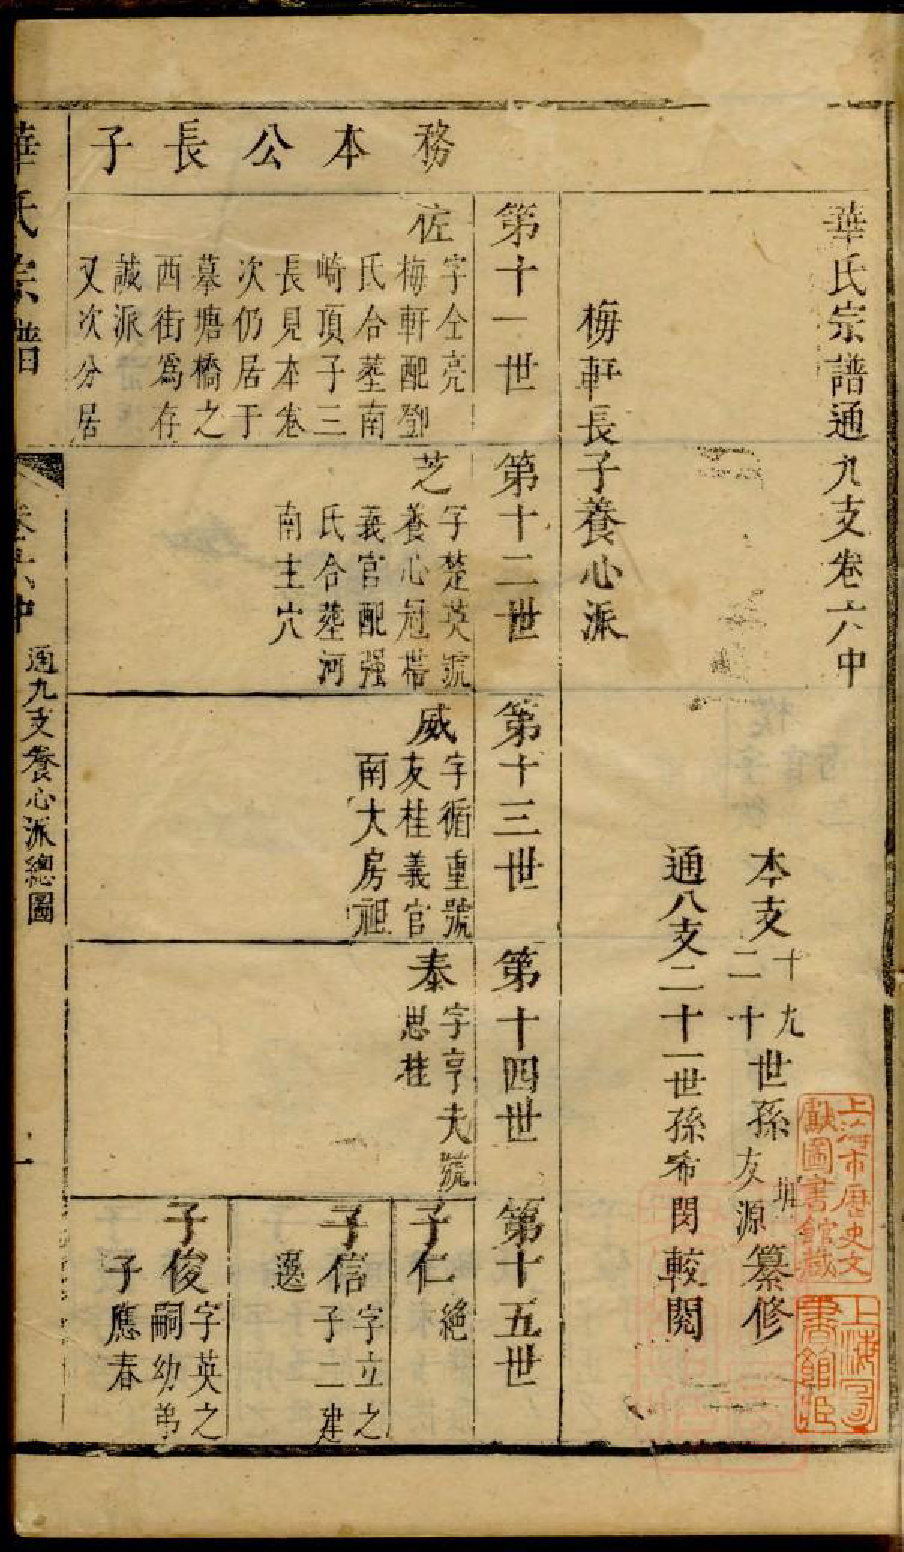 華氏宗譜通九支卷六中
本支十九世孫
二十
友源纂修
通八支二十一世孫希閔較閱
梅軒長子養心派
務本公長子
第十一世
佐
字仝亮
梅軒配鄧
氏合塟南
崎頂子三
長見本卷
次仍居于
摹塘橋之
西街爲存
誠派
又次分居
第十二世
芝
字楚英號
養心冠帶
義官配強
氏合塟河
南主穴
第十三世
威
字循重號
友桂義官
南大房祖
第十四世
泰
字亨夫號
思桂
第十五世
子仁
絶
子信
字立之
子二建
選
子俊
字英之
嗣幼弟
子應春
華氏宗譜
卷六中
通九支養心派總圖
一
上海市歷史文
獻圖書館藏
上海圖
書館藏